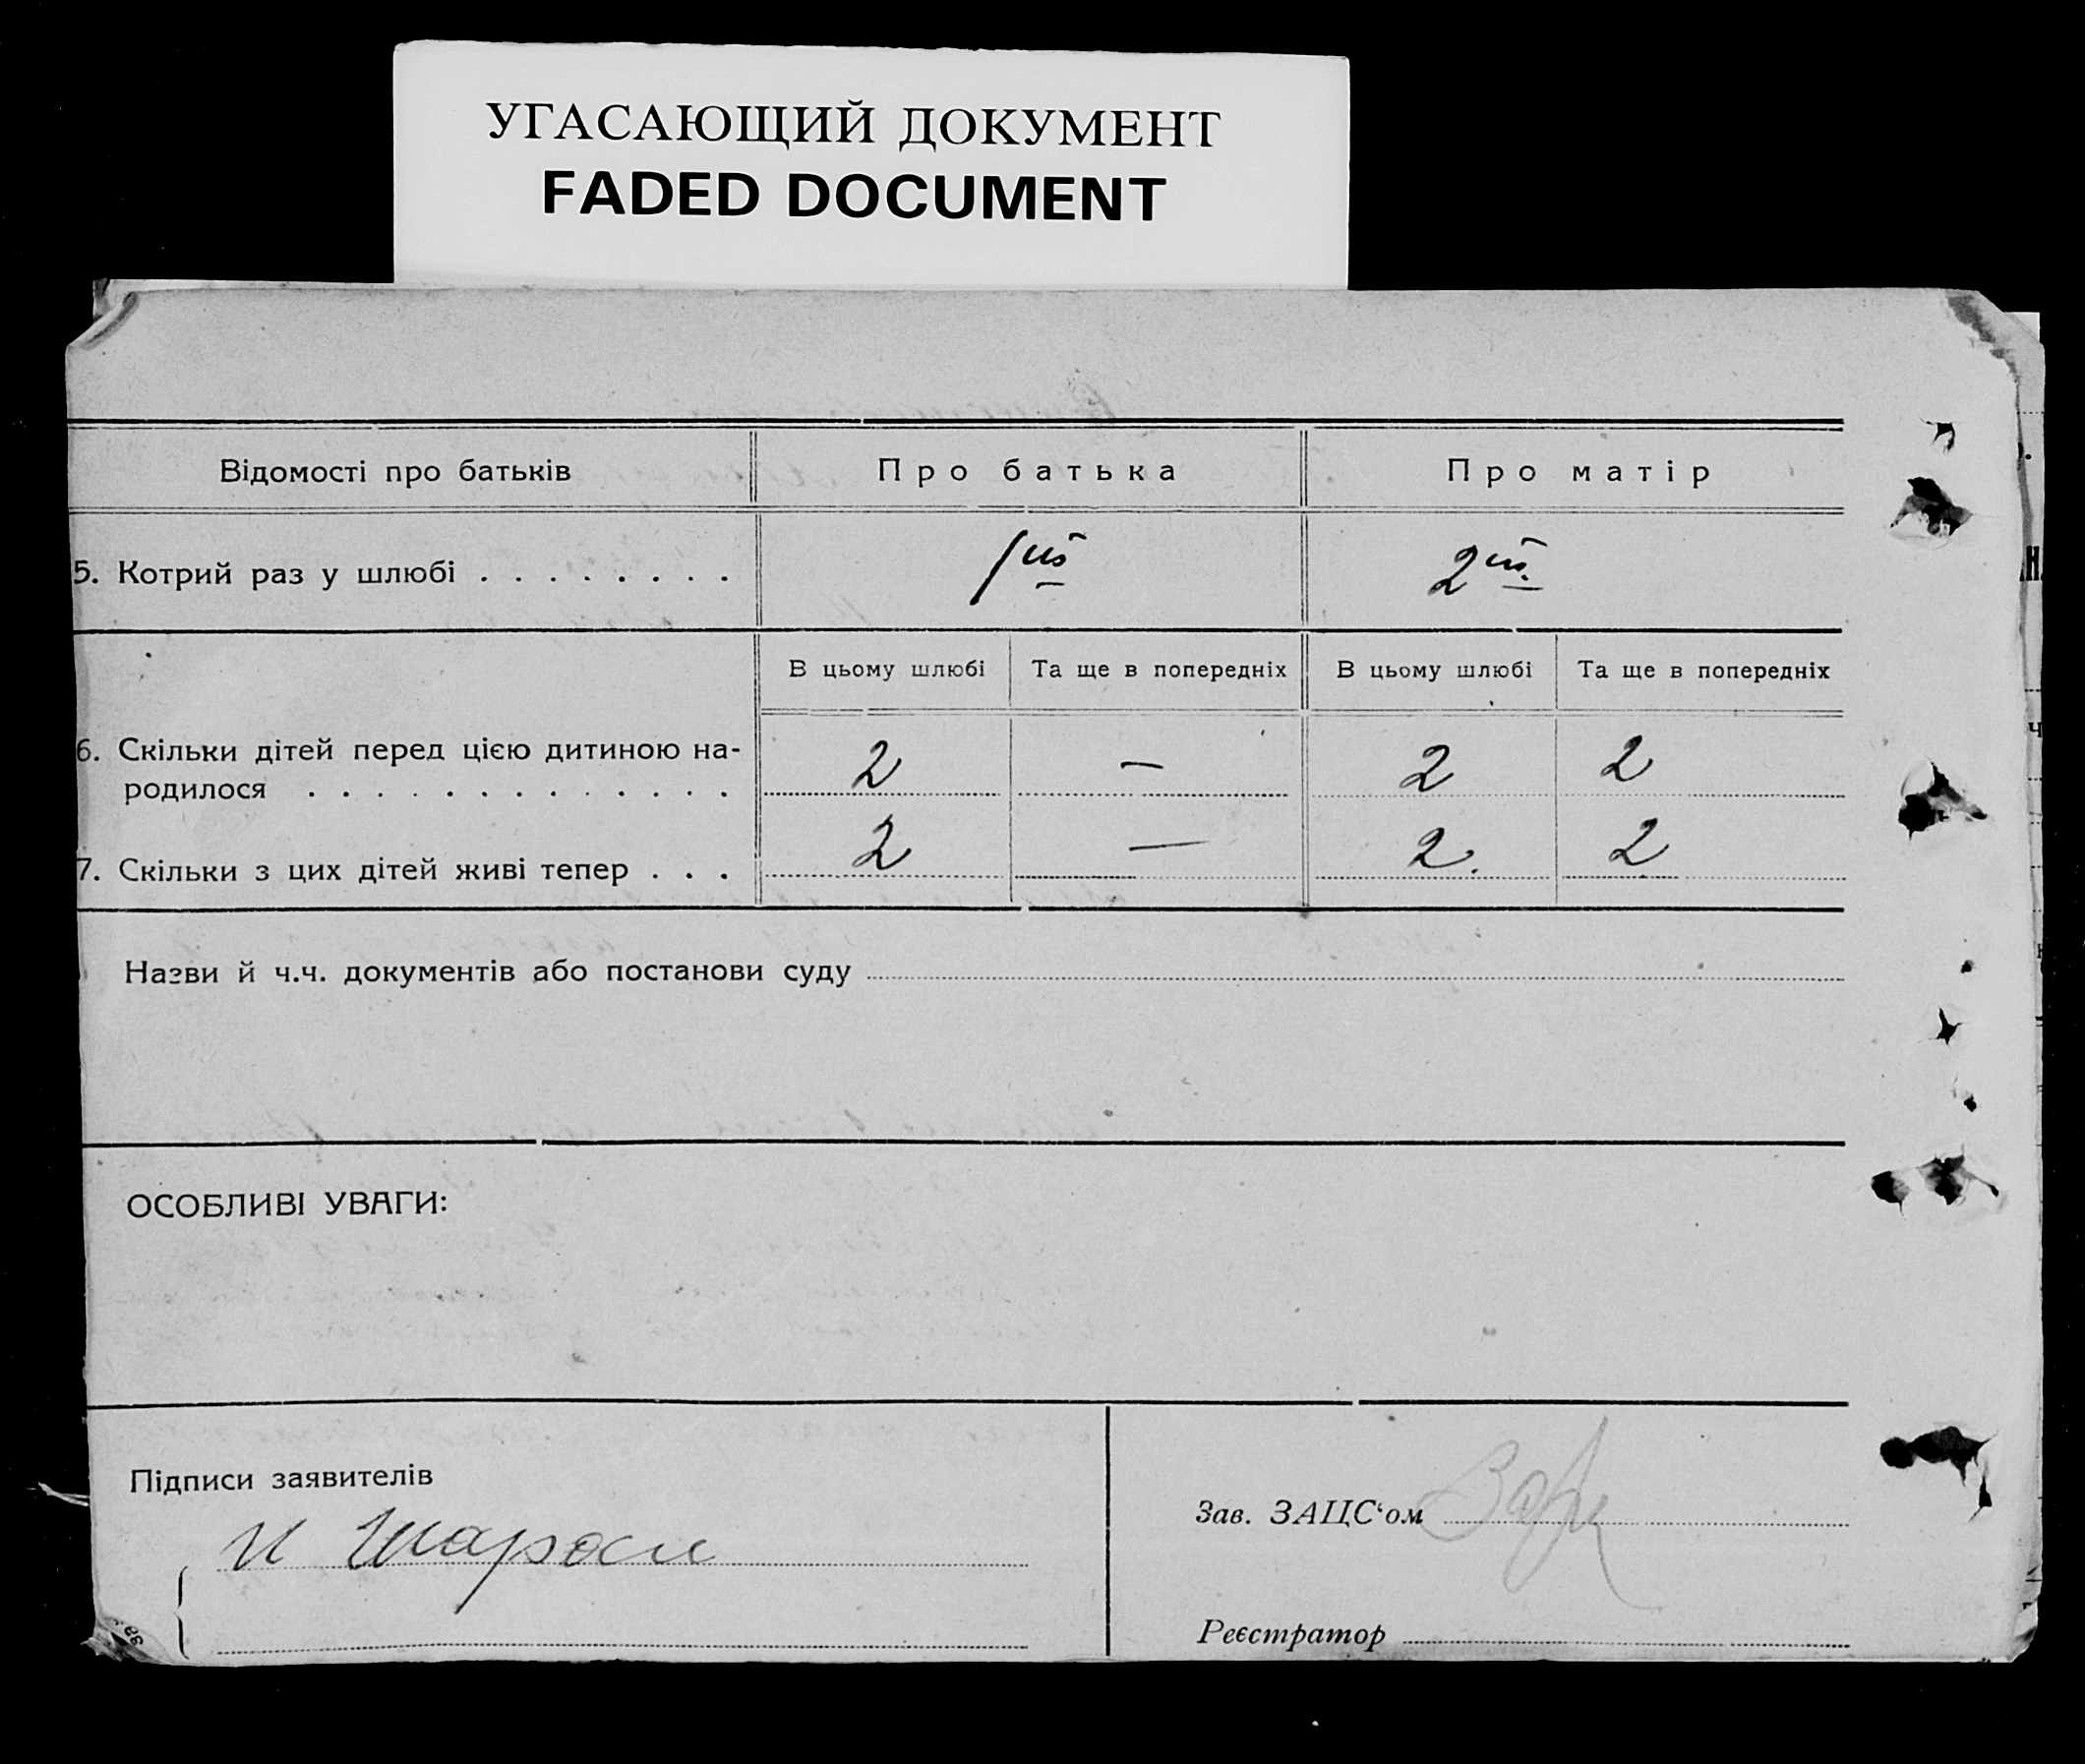 УГАСАЮЩИЙ ДОКУМЕНТ
FADED DOCUMENT
Відомості про батьків
Про батька
Про матір
5. Котрий раз у шлюбі . . . . . . . .
1ий
2ий
В цьому шлюбі
Та ще в попередніх
В цьому шлюбі
Та ще в попередніх
6. Скільки дітей перед цією дитиною на-
родилося . . . . . . . . . . . . .
2
—
2
2
7. Скільки з цих дітей живі тепер . . .
2
—
2.
2
Назви й ч.ч. документів або постанови суду
ОСОБЛИВІ УВАГИ:
Підписи заявителів
Зав. ЗАЦС‘ом
Реєстратор